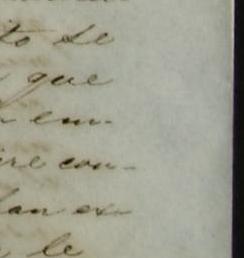 to se
que
em-
ire con-
lan ex-
le